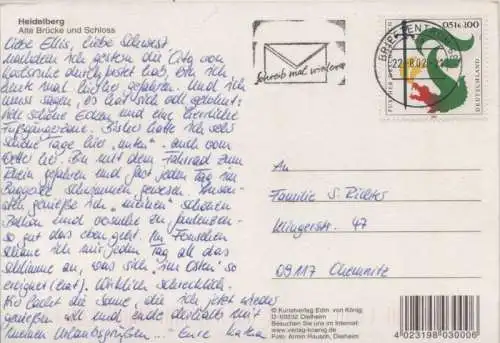 Heidelberg
Alte Brücke und Schloss
Liebe Ellis, liebe Schwest
Nachdem ich gestern die City von
Karlsruhe durchgestet hab, bin ich
heute mal hierher gefahren. Und ich
muss sagen, es hat sich voll gelohnt:
viele schöne Ecken und eine herrliche
Fußgängerzone. Bisher hatte ich sehr
schöne Tage hier "unten". auch vom
Wetter her. Bin mit dem Fahrrad zum
Rhein gefahren und fast jeden Tag im
Baggersee schwimmen gewesen. Ansonsten
genieße ich "meinen" schönen
Balkon und versuche zu faulenzen-
so gut das eben geht. Im Fernsehen
schaue ich mir jeden Tag all das
Schlimme an, was sich "im Osten" so
ereignet (hat). Wirklich schrecklich.
lacht die Sonne, die ich jetzt wieder
genießen will und ende deshalb mit
lieben Urlaubsgrüßen... Eure
Schreib mal wieder
BRIEFZENTRUM
22.-8.02
0,51€ 100
DEUTSCHLAND
An
Familie S. Richter
47
09117 Chemnitz
© Kunstverlag Edm. von König,
D-69232 Dielheim
Besuchen Sie uns im Internet:
www.verlag-koenig.de
Foto: Armin Rausch, Dielheim
4 023198 030006